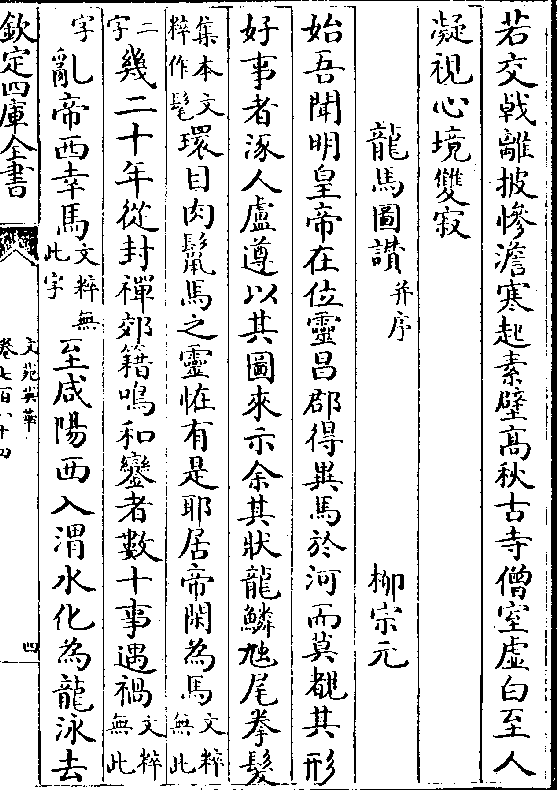 若交戟離披慘澹寒起素壁高秋古寺僧室虛白至人
凝視心境雙寂
龍馬圖讃并序 柳宗元
始吾聞明皇帝在位靈昌郡得異馬於河而莫覩其形
好事者涿人盧遵以其圖來示余其狀龍鱗虺尾拳髮
集本文粹作髦環目肉鬣馬之靈恠有是耶居帝閑為馬文粹無此
二字幾二十年從封禪郊籍鳴和鑾者數十事遇禍文粹無此
字亂帝西幸馬文粹無此字至咸陽西入渭水化為龍泳去
欽定四庫全書
文苑英華
卷七百八十四
四